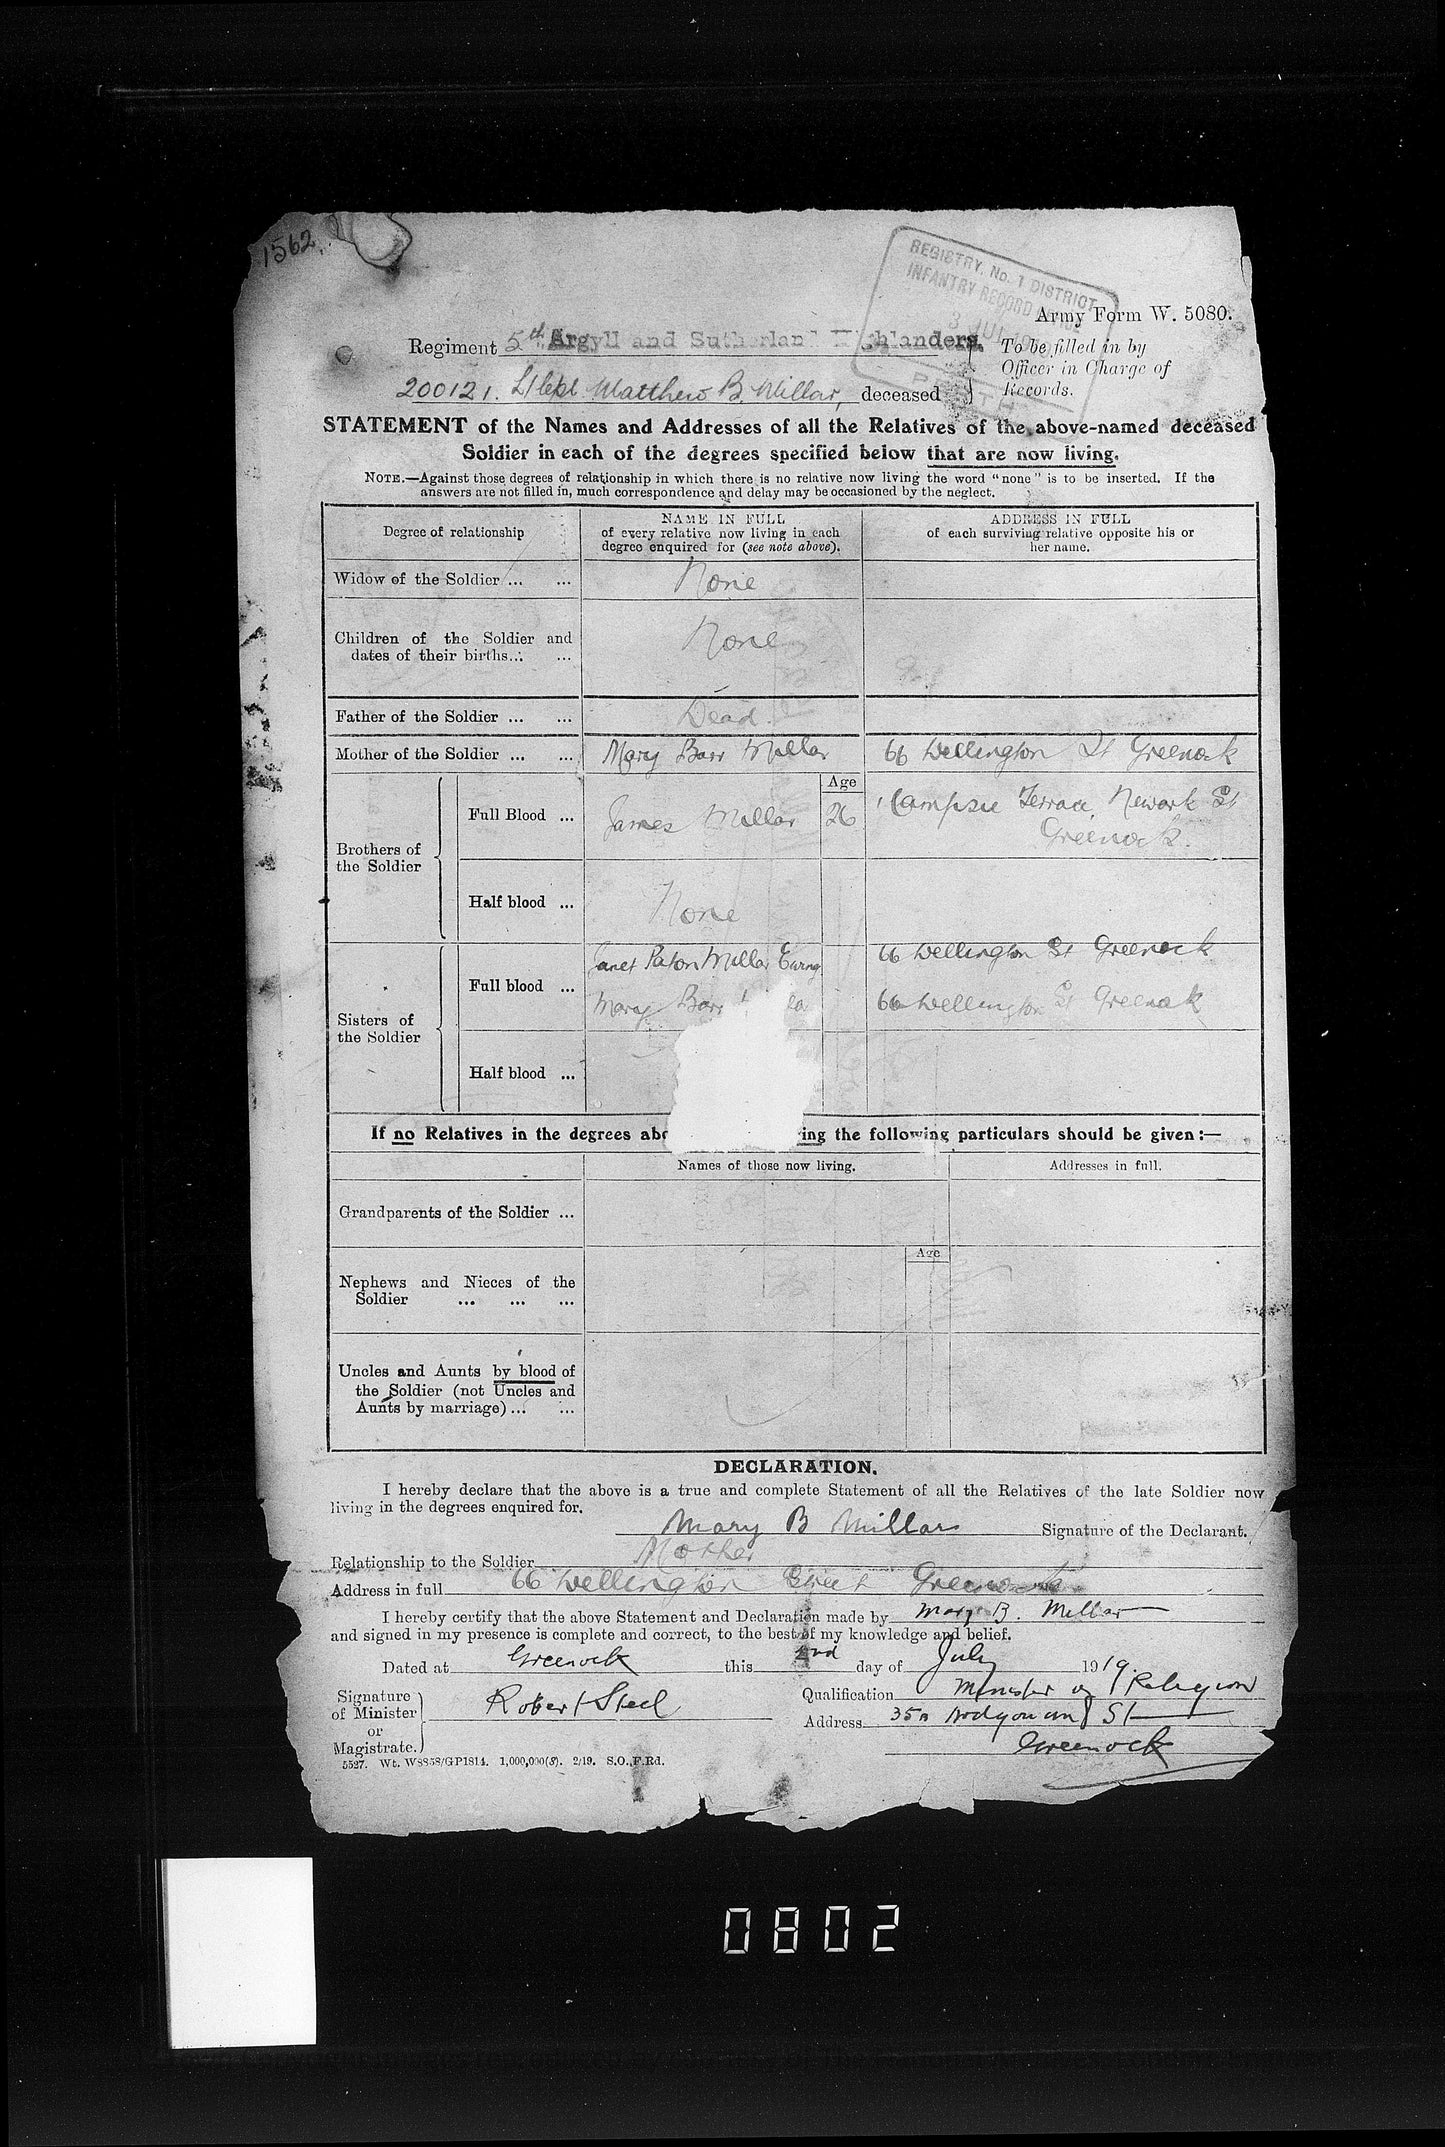 1562.
REGISTRY, No. 1 DISTRICT
INFANTRY RECORD OFFICE
3 JUL 19
PERTH
Army Form W. 5080.
Regiment 5th Argyll and Sutherland Highlanders.
To be filled in by
Officer in Charge of
Records.
200121. L/Cpl Matthew B. Millar, deceased
STATEMENT of the Names and Addresses of all the Relatives of the above-named deceased
Soldier in each of the degrees specified below that are now living.
NOTE.—Against those degrees of relationship in which there is no relative now living the word "none" is to be inserted. If the
answers are not filled in, much correspondence and delay may be occasioned by the neglect.
Degree of relationship
NAME IN FULL
of every relative now living in each
degree enquired for (see note above).
ADDRESS IN FULL
of each surviving relative opposite his or
her name.
Widow of the Soldier ... ... None
Children of the Soldier and
dates of their births... ... None
Father of the Soldier ... ... Dead.
Mother of the Soldier ... ... Mary Barr Millar 66 Wellington St Greenock
Age
Brothers of
the Soldier
Full Blood ... James Millar 26 1 Campsie Terrace, Newark St
Greenock.
Half blood ... None
Sisters of
the Soldier
Full blood ... Janet Paton Millar Ewing 66 Wellington St Greenock
Mary Barr 66 Wellington St Greenock
Half blood ...
If no Relatives in the degrees ing the following particulars should be given:—
Names of those now living.
Addresses in full.
Grandparents of the Soldier ...
Age
Nephews and Nieces of the
Soldier ... ... ...
Uncles and Aunts by blood of
the Soldier (not Uncles and
Aunts by marriage) ... ...
DECLARATION.
I hereby declare that the above is a true and complete Statement of all the Relatives of the late Soldier now
living in the degrees enquired for.
Mary B Millar Signature of the Declarant.
Relationship to the Soldier Mother
Address in full 66 Wellington Street Greenock
I hereby certify that the above Statement and Declaration made by Mary B. Millar
and signed in my presence is complete and correct, to the best of my knowledge and belief.
Dated at Greenock this 2nd day of July 1919.
Signature
of Minister
or
Magistrate.
Robert Steel
Qualification Minister of Religion
Address 35A St
Greenock
5527. Wt. W8858/GP1814. 1,000,000(S). 2/19. S.O.,F.Rd.
0802